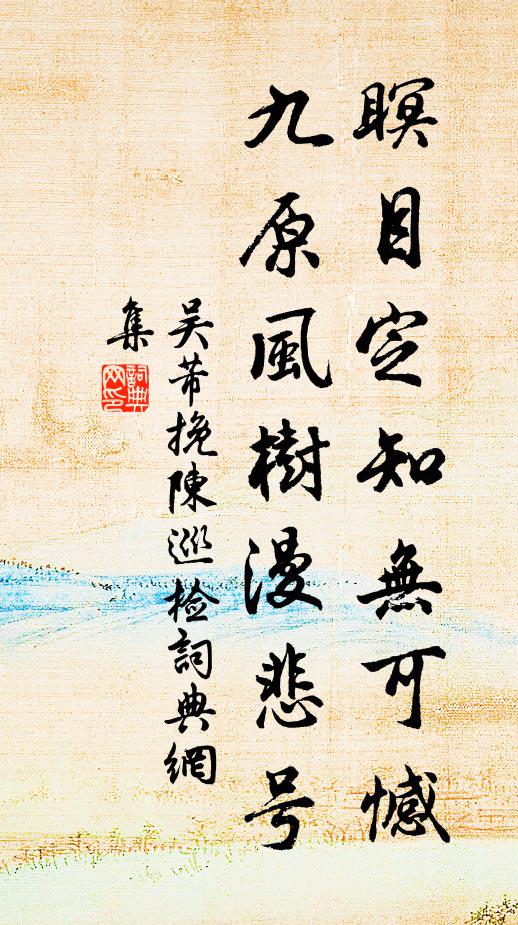 瞑目定知無可憾
九原風樹漫悲号
吴芾挽陳巡检詞典網
集
詞典
网印